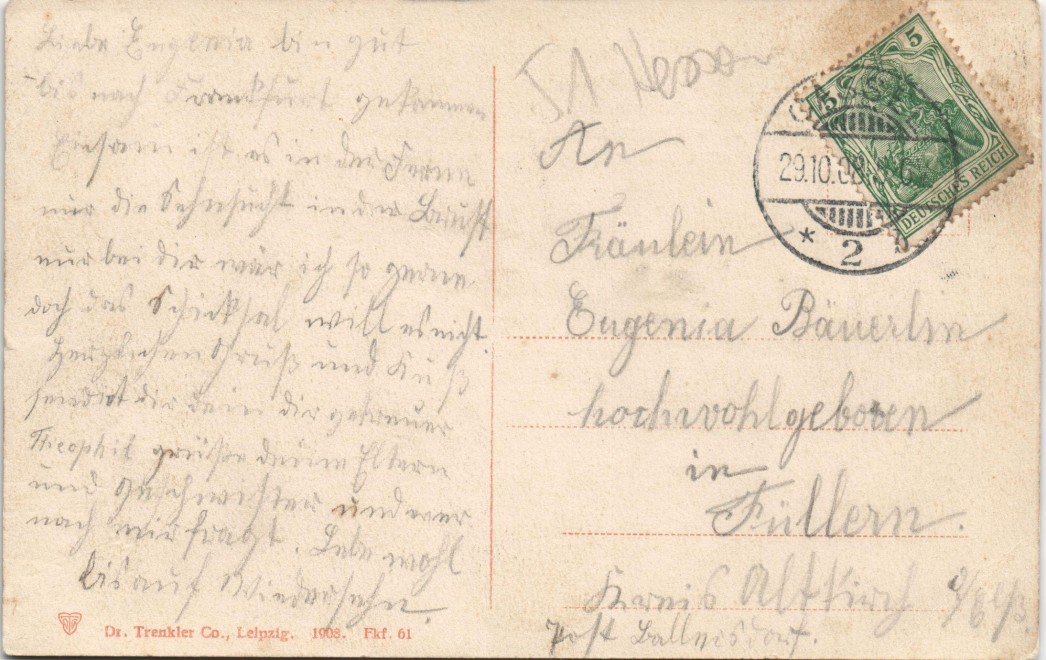 Liebe Eugenia bin gut
bis nach Frankfurt gekommen
Einsam ist es in der Ferne
nur die Sehnsucht in der Brust
nur bei dir wär ich so gerne
doch das Schicksal will es nicht.
Herzlichen Gruß und Kuß
sendet dir dein dir getreuer
Theophil grüße deine Eltern
und Geschwister und wer
nach mir fragt. Lebe wohl
bis auf Wiedersehn.
Dr. Trenkler Co., Leipzig. 1908. Fkf. 61
51 Hessen
CASSEL
29.10.08
* 2 b
5
5
DEUTSCHES REICH
An
Fräulein
Eugenia Bäuerlin
hochwohlgeboren
in
Füllern.
Kreis Altkirch
Post Ballersdorf.